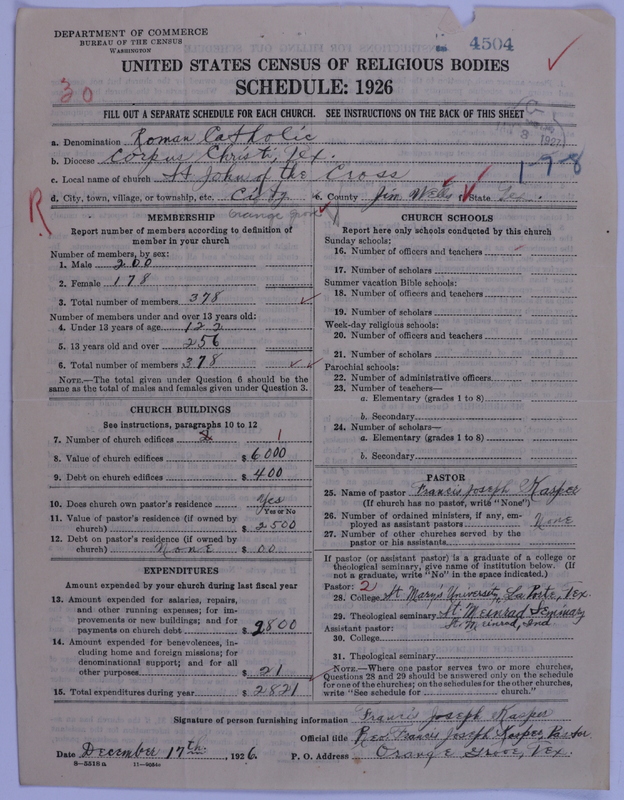 DEPARTMENT OF COMMERCE
BUREAU OF THE CENSUS
WASHINGTON
4504
UNITED STATES CENSUS OF RELIGIOUS BODIES
SCHEDULE: 1926
30
FILL OUT A SEPARATE SCHEDULE FOR EACH CHURCH. SEE INSTRUCTIONS ON THE BACK OF THIS SHEET
a. Denomination Roman Catholic
b. Diocese Corpus Christi, Tex.
1-7-8
c. Local name of church St John of the Cross
d. City, town, village, or township, etc. City e. County Jim Wells f. State Tex.
Orange Grove
R
MEMBERSHIP
Report number of members according to definition of
member in your church
Number of members, by sex:
1. Male 200
2. Female 178
3. Total number of members 378
Number of members under and over 13 years old:
4. Under 13 years of age 122
5. 13 years old and over 256
6. Total number of members 378
NOTE.—The total given under Question 6 should be the
same as the total of males and females given under Question 3.
CHURCH BUILDINGS
See instructions, paragraphs 10 to 12
7. Number of church edifices 1
8. Value of church edifices $ 6000
9. Debt on church edifices $ 400
10. Does church own pastor's residence Yes
Yes or No
11. Value of pastor's residence (if owned by
church) $ 2500
12. Debt on pastor's residence (if owned by
church) None $ 00
EXPENDITURES
Amount expended by your church during last fiscal year
13. Amount expended for salaries, repairs,
and other running expenses; for im-
provements or new buildings; and for
payments on church debt $ 2800
14. Amount expended for benevolences, in-
cluding home and foreign missions; for
denominational support; and for all
other purposes $ 21
15. Total expenditures during year $ 2821
CHURCH SCHOOLS
Report here only schools conducted by this church
Sunday schools:
16. Number of officers and teachers
17. Number of scholars
Summer vacation Bible schools:
18. Number of officers and teachers
19. Number of scholars
Week-day religious schools:
20. Number of officers and teachers
21. Number of scholars
Parochial schools:
22. Number of administrative officers
23. Number of teachers—
a. Elementary (grades 1 to 8)
b. Secondary
24. Number of scholars—
a. Elementary (grades 1 to 8)
b. Secondary
PASTOR
25. Name of pastor Francis Joseph Kasper
(If church has no pastor, write "None")
26. Number of ordained ministers, if any, em-
ployed as assistant pastors None
27. Number of other churches served by the
pastor or his assistants
If pastor (or assistant pastor) is a graduate of a college or
theological seminary, give name of institution below. (If
not a graduate, write "No" in the space indicated.)
Pastor: 2
28. College St Marys University, La Porte, Tex.
29. Theological seminary St Meinrad Seminary
Assistant pastor: St. Meinrad, Ind
30. College
31. Theological seminary
NOTE.—Where one pastor serves two or more churches,
Questions 28 and 29 should be answered only on the schedule
for one of the churches; on the schedules for the other churches,
write "See schedule for church."
Signature of person furnishing information Francis Joseph Kasper
Official title Rev. Francis Joseph Kasper, Pastor
Date December 17th, 1926. P. O. Address Orange Grove, Tex.
8-5518 a